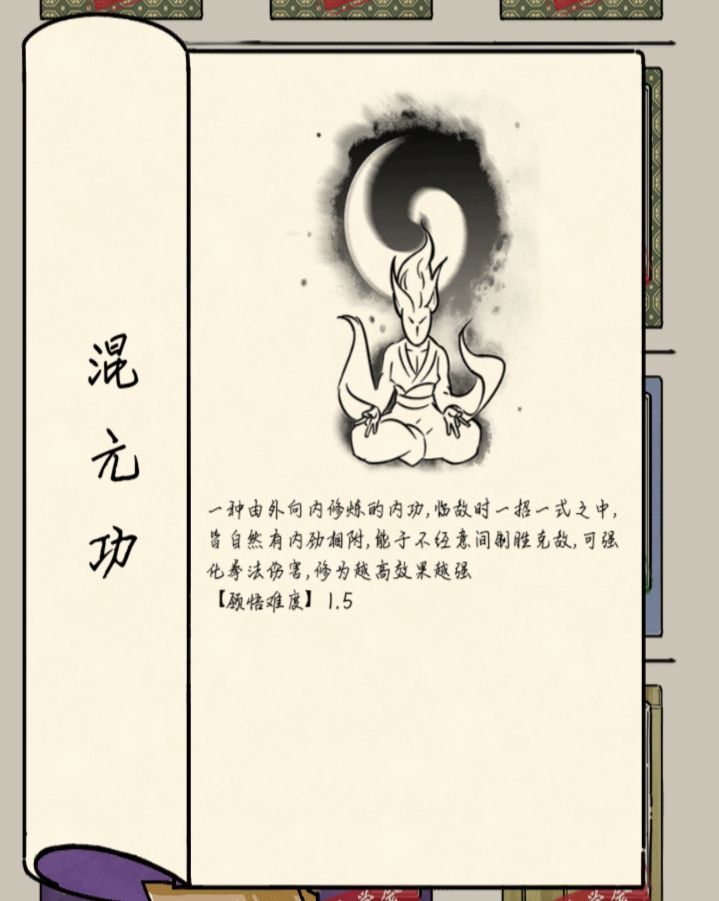 混元功
一种由外向内修炼的内功,临敌时一招一式之中,
皆自然有内劲相附,能于不经意间制胜克敌,可强
化拳法伤害,修为越高效果越强
【领悟难度】 1.5